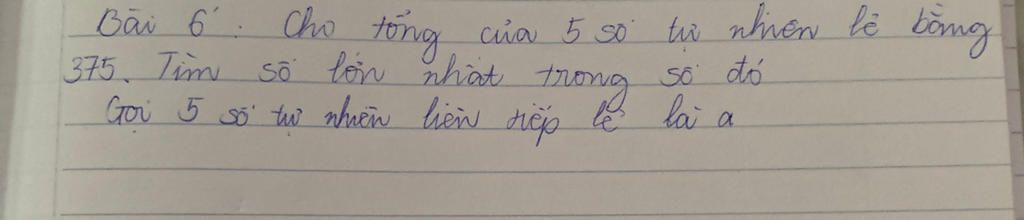 Bài 6: Cho tổng của 5 số tự nhiên lẻ bằng
375. Tìm số lớn nhất trong số đó
Gọi 5 số tự nhiên liên tiếp lẻ là a